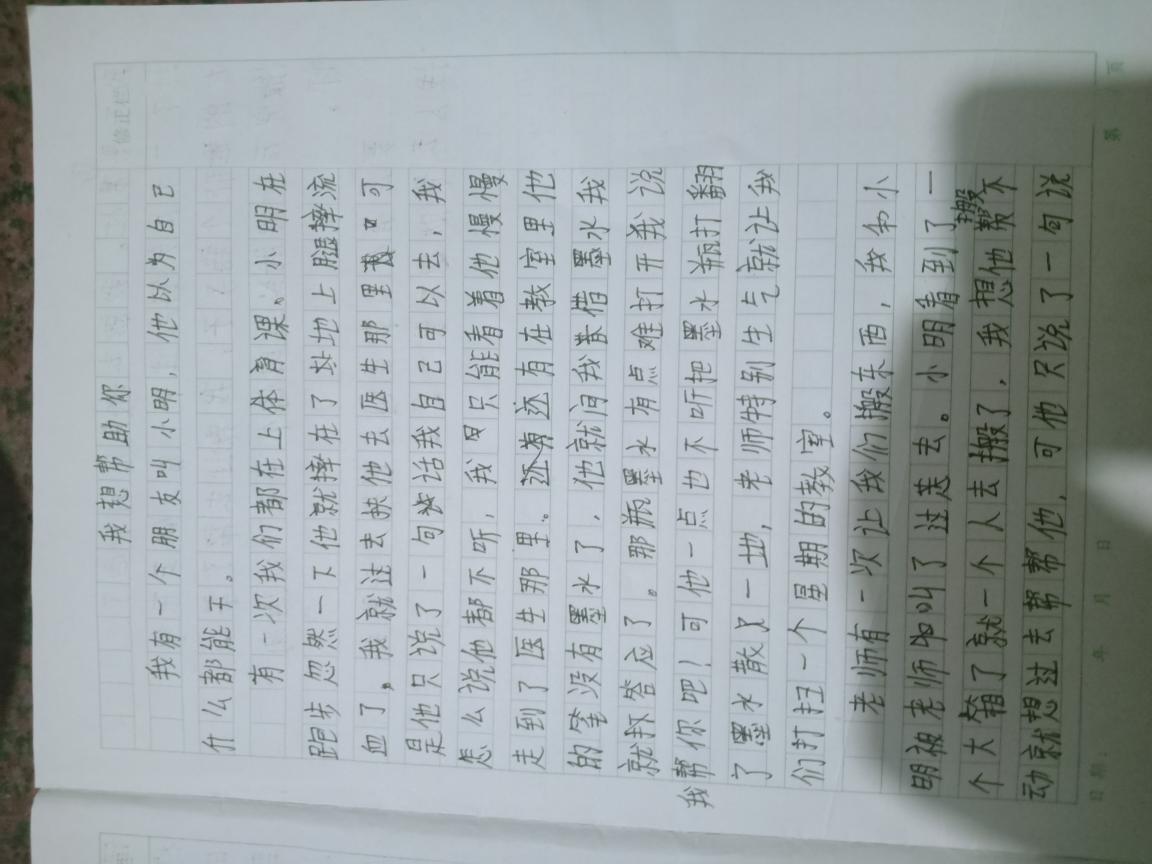 我想帮助你
我有一个朋友叫小明，他以为自己
什么都能干。
有一次我们都在上体育课。小明在
跑步忽然一下他就摔在了地上腿摔流
血了。我就过去扶他去医生那里可
是他只说了一句话我自己可以去，我
怎么说他都不听，我只能看着他慢慢
走到了医生那里。还有在教室里他
的笔没有墨水了，他就问我借墨水我
就答应了。那瓶墨水有点难打开我说
我帮你吧！可他一点也不听把墨水瓶打翻
了墨水散了一地，老师特别生气就让我
们打扫一个星期的教室。
老师有一次让我们搬东西，我和小
明被老师叫了过去。小明看到了一
个大箱了就一个人去搬了，我想他搬不
动就想过去帮帮他，可他只说了一句说
修正栏
日期：
年 月 日
第 页